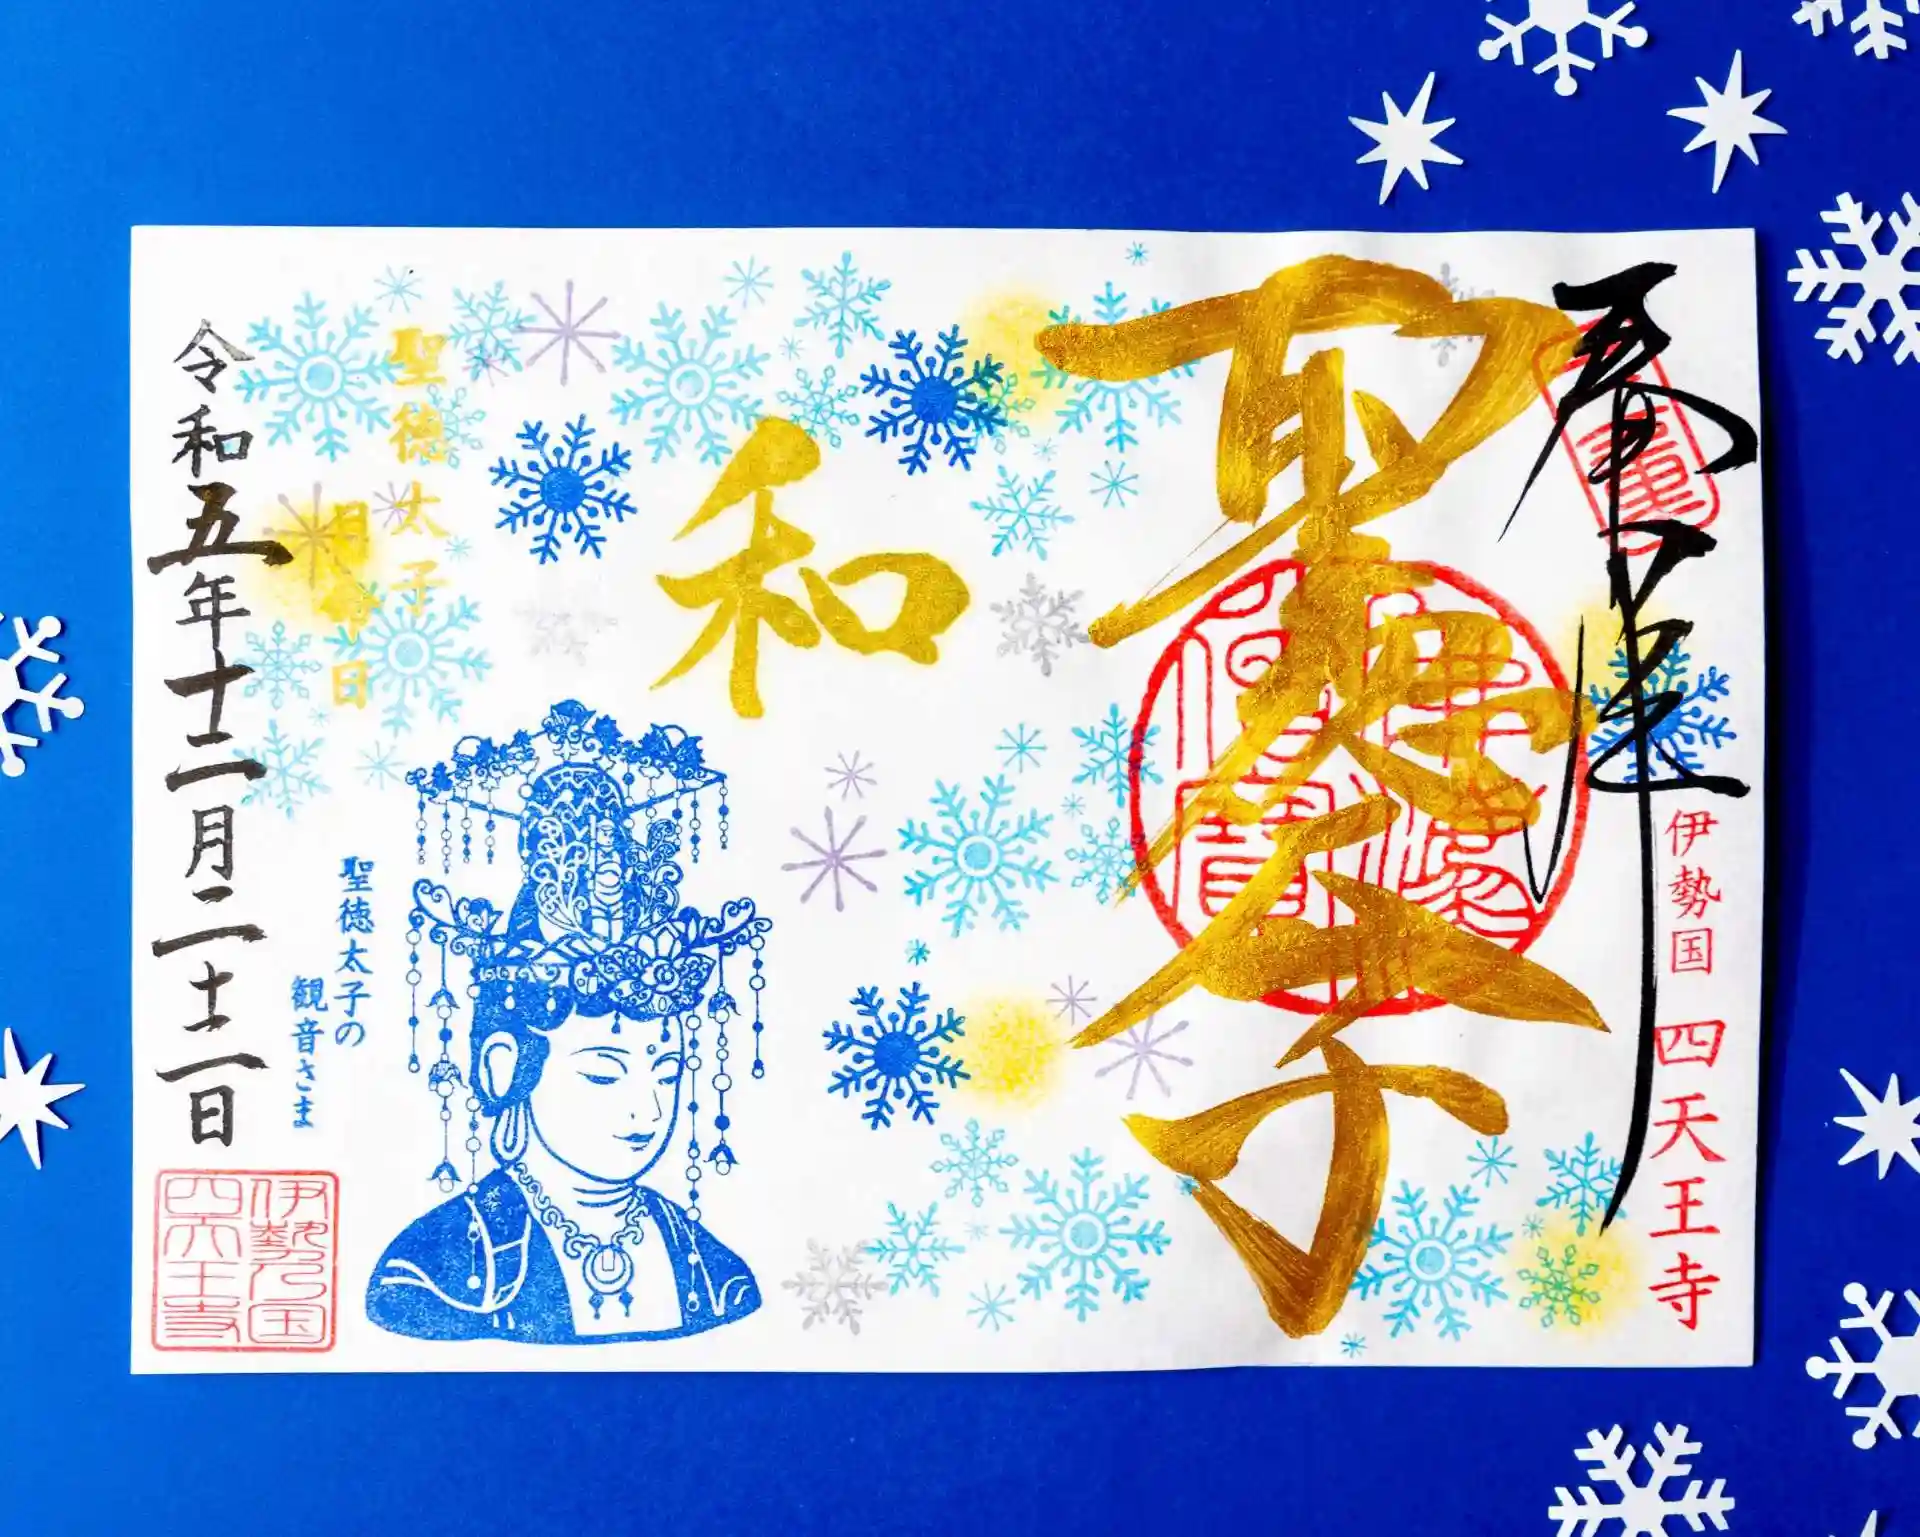 奉拝
伊勢国 四天王寺
聖徳太子
和
聖徳太子
月命日
聖徳太子の
観音さま
令和五年十二月二十二日
伊勢乃国
四天王寺